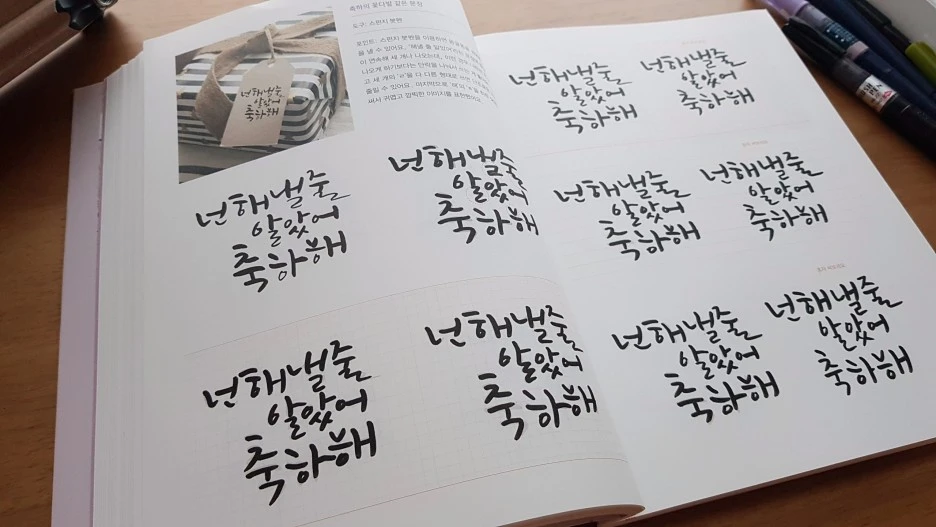 축하의 꽃다발 같은 문장
도구: 스펀지 붓펜
포인트: 스펀지 붓펜을 이용하면
을 낼 수 있어요. '해낼 줄 알았어'의
이 연속해 세 개나 나오는데, 이런
나오게 하기보다는 단락을 나눠서
고 세 개의 'ㄹ'을 다 다른 형태로
수 있어요. 마지막으로
써서 귀엽고 깜찍한 이미지를 표현했어요.
넌 해낼 줄
알았어
축하해
넌 해낼 줄
알았어
축하해
넌 해낼 줄
알았어
축하해
넌 해낼 줄
알았어
축하해
넌 해낼 줄
알았어
축하해
넌 해낼 줄
알았어
축하해
넌 해낼 줄
알았어
축하해
넌 해낼 줄
알았어
축하해
넌 해낼 줄
알았어
축하해
넌 해낼 줄
알았어
축하해
넌 해낼 줄
알았어
축하해